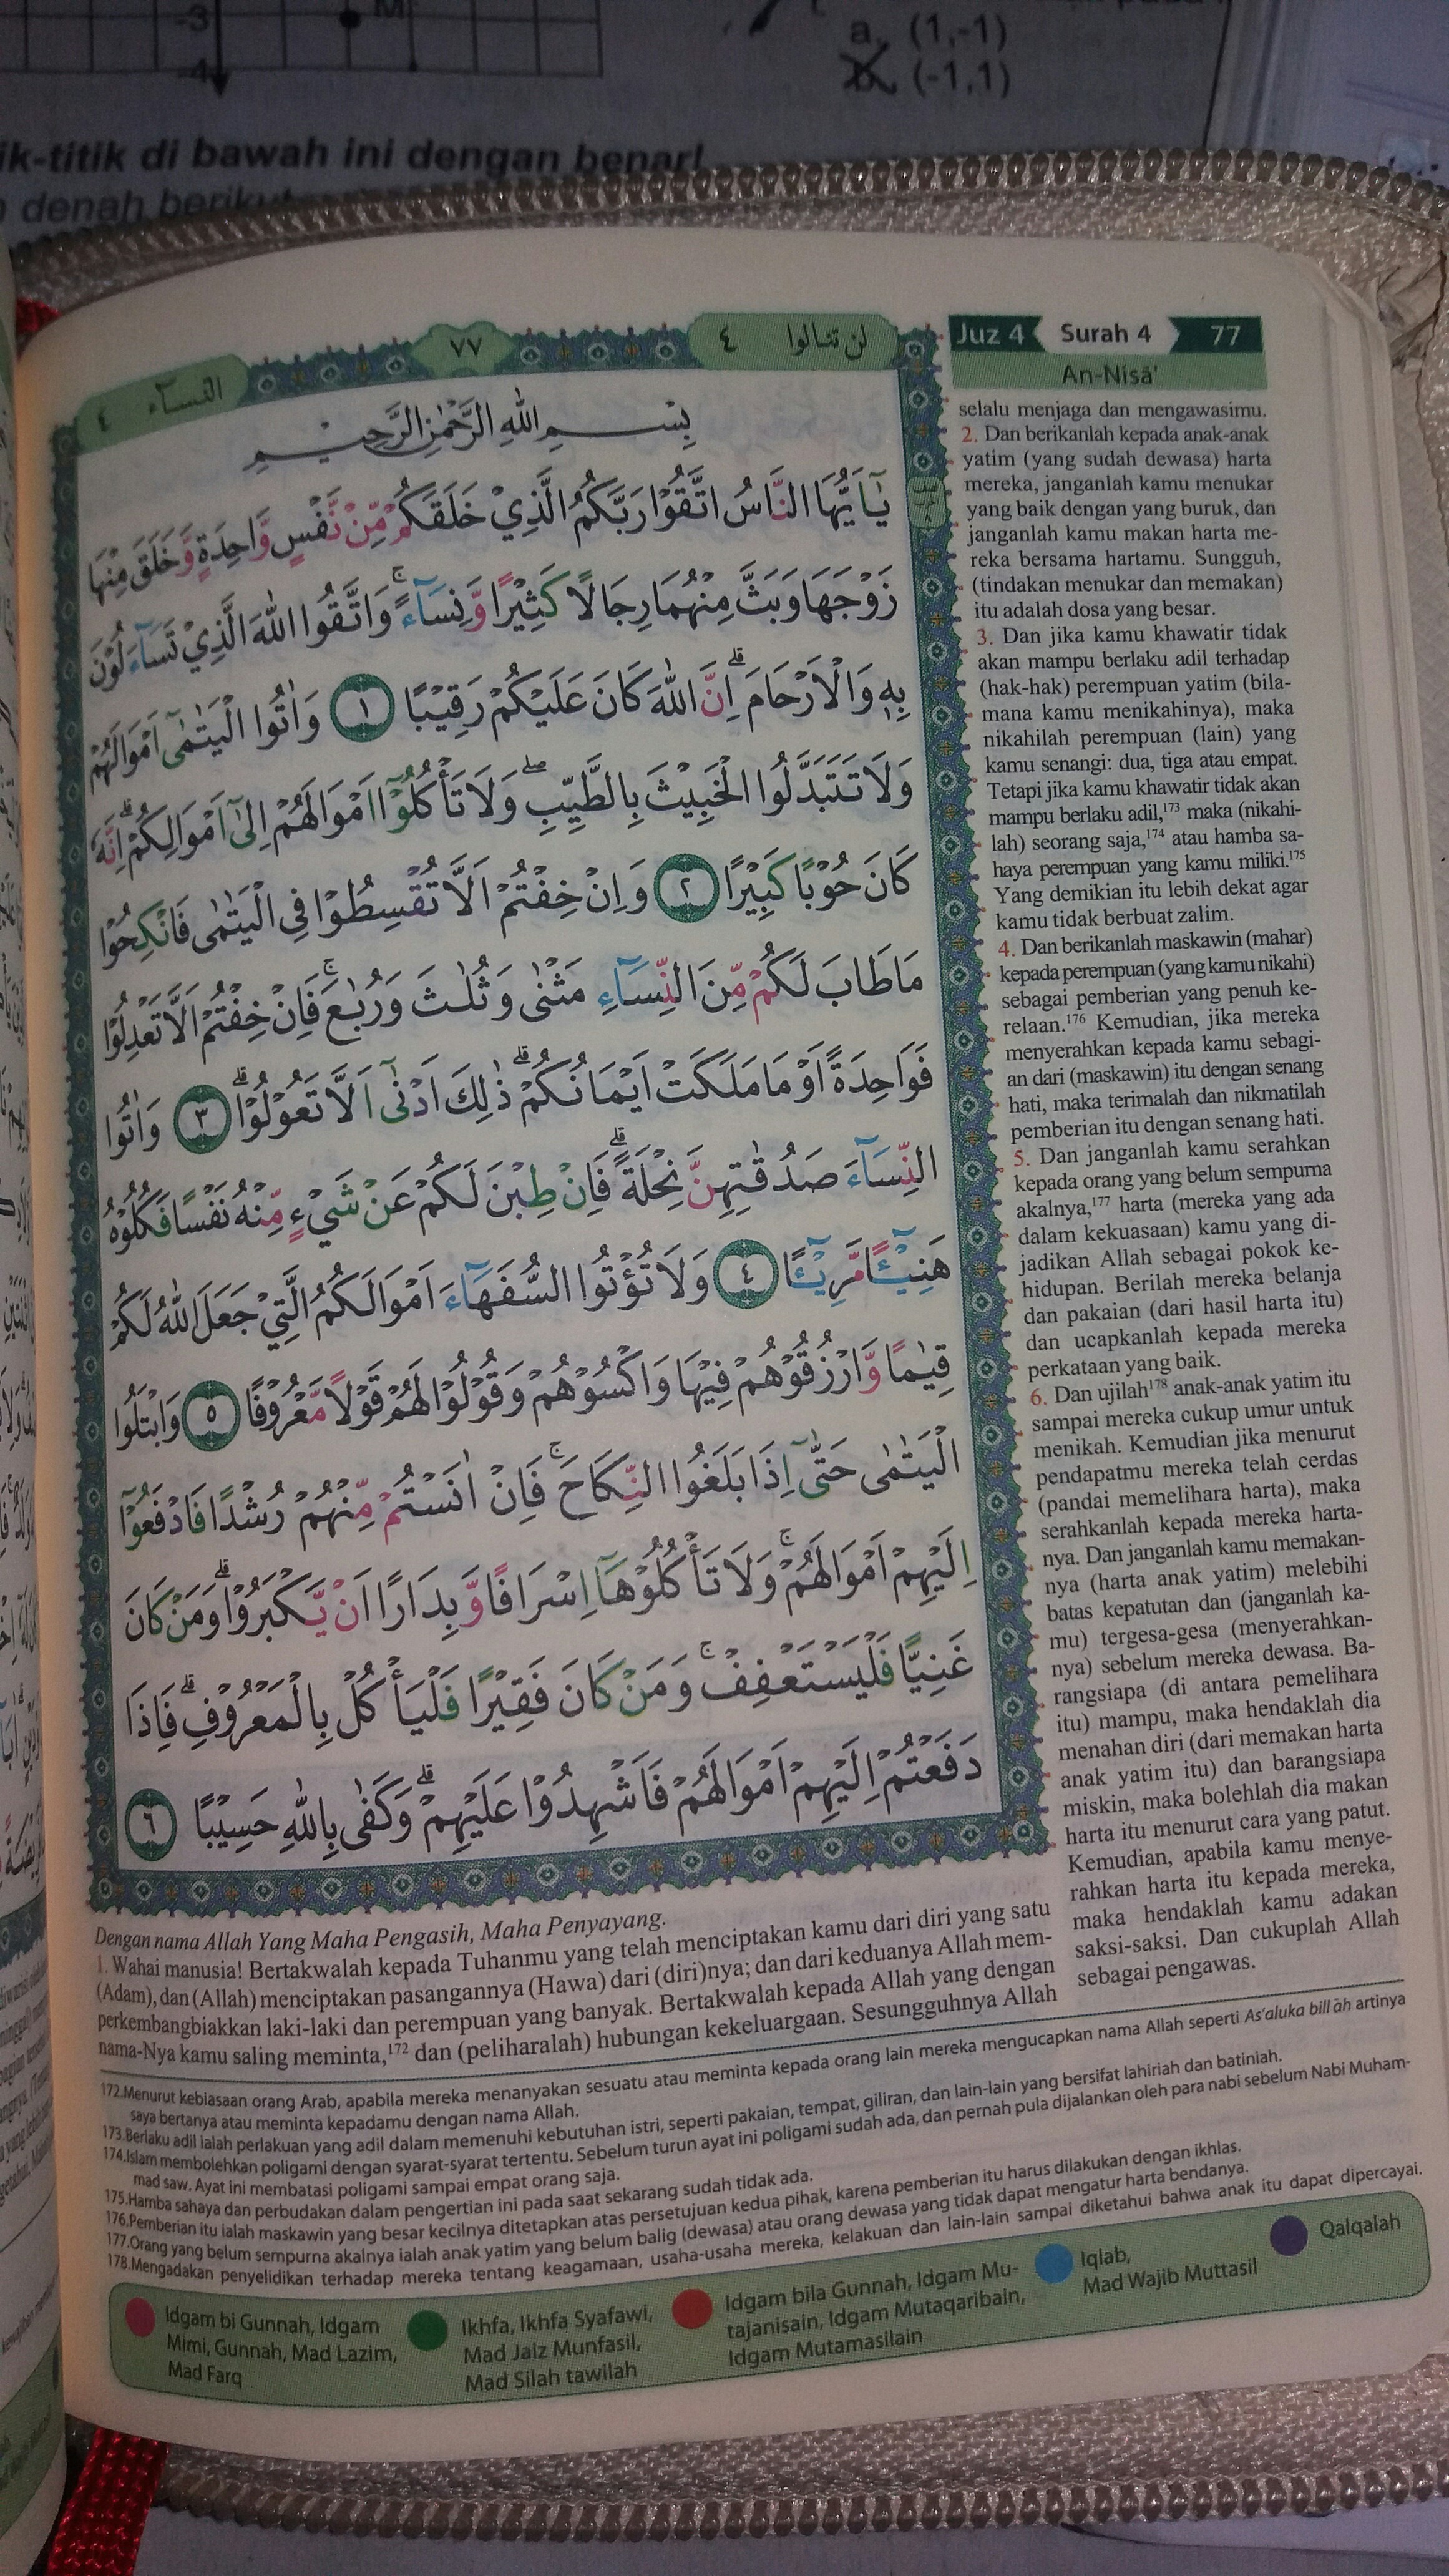 -3
M
-4
a. (1,-1)
b. (-1,1)
ik-titik di bawah ini dengan benar!
denah berikut
النساۤء ٤
٧٧
لن تنالوا ٤
Juz 4
Surah 4
77
An-Nisā'
بِسْمِ اللّٰهِ الرَّحْمٰنِ الرَّحِيْمِ
يٰٓاَيُّهَا النَّاسُ اتَّقُوْا رَبَّكُمُ الَّذِيْ خَلَقَكُمْ مِّنْ نَّفْسٍ وَّاحِدَةٍ وَّخَلَقَ مِنْهَا
زَوْجَهَا وَبَثَّ مِنْهُمَا رِجَالًا كَثِيْرًا وَّنِسَاۤءً ۚ وَاتَّقُوا اللّٰهَ الَّذِيْ تَسَاۤءَلُوْنَ
بِهٖ وَالْاَرْحَامَ ۗ اِنَّ اللّٰهَ كَانَ عَلَيْكُمْ رَقِيْبًا ١ وَاٰتُوا الْيَتٰمٰٓى اَمْوَالَهُمْ
وَلَا تَتَبَدَّلُوا الْخَبِيْثَ بِالطَّيِّبِ ۖ وَلَا تَأْكُلُوْٓا اَمْوَالَهُمْ اِلٰٓى اَمْوَالِكُمْ ۗ اِنَّهٗ
كَانَ حُوْبًا كَبِيْرًا ٢ وَاِنْ خِفْتُمْ اَلَّا تُقْسِطُوْا فِى الْيَتٰمٰى فَانْكِحُوْا
مَا طَابَ لَكُمْ مِّنَ النِّسَاۤءِ مَثْنٰى وَثُلٰثَ وَرُبٰعَ ۚ فَاِنْ خِفْتُمْ اَلَّا تَعْدِلُوْا
فَوَاحِدَةً اَوْ مَا مَلَكَتْ اَيْمَانُكُمْ ۗ ذٰلِكَ اَدْنٰٓى اَلَّا تَعُوْلُوْا ۗ ٣ وَاٰتُوا
النِّسَاۤءَ صَدُقٰتِهِنَّ نِحْلَةً ۗ فَاِنْ طِبْنَ لَكُمْ عَنْ شَيْءٍ مِّنْهُ نَفْسًا فَكُلُوْهُ
هَنِيْۤـًٔا مَّرِيْۤـًٔا ٤ وَلَا تُؤْتُوا السُّفَهَاۤءَ اَمْوَالَكُمُ الَّتِيْ جَعَلَ اللّٰهُ لَكُمْ
قِيٰمًا وَّارْزُقُوْهُمْ فِيْهَا وَاكْسُوْهُمْ وَقُوْلُوْا لَهُمْ قَوْلًا مَّعْرُوْفًا ٥ وَابْتَلُوا
الْيَتٰمٰى حَتّٰىٓ اِذَا بَلَغُوا النِّكَاحَ ۚ فَاِنْ اٰنَسْتُمْ مِّنْهُمْ رُشْدًا فَادْفَعُوْٓا
اِلَيْهِمْ اَمْوَالَهُمْ ۚ وَلَا تَأْكُلُوْهَآ اِسْرَافًا وَّبِدَارًا اَنْ يَّكْبَرُوْا ۗ وَمَنْ كَانَ
غَنِيًّا فَلْيَسْتَعْفِفْ ۚ وَمَنْ كَانَ فَقِيْرًا فَلْيَأْكُلْ بِالْمَعْرُوْفِ ۗ فَاِذَا
دَفَعْتُمْ اِلَيْهِمْ اَمْوَالَهُمْ فَاَشْهِدُوْا عَلَيْهِمْ ۗ وَكَفٰى بِاللّٰهِ حَسِيْبًا ٦
Dengan nama Allah Yang Maha Pengasih, Maha Penyayang.
1. Wahai manusia! Bertakwalah kepada Tuhanmu yang telah menciptakan kamu dari diri yang satu
(Adam), dan (Allah) menciptakan pasangannya (Hawa) dari (diri)nya; dan dari keduanya Allah mem-
perkembangbiakkan laki-laki dan perempuan yang banyak. Bertakwalah kepada Allah yang dengan
nama-Nya kamu saling meminta,172 dan (peliharalah) hubungan kekeluargaan. Sesungguhnya Allah
selalu menjaga dan mengawasimu.
2. Dan berikanlah kepada anak-anak
yatim (yang sudah dewasa) harta
mereka, janganlah kamu menukar
yang baik dengan yang buruk, dan
janganlah kamu makan harta me-
reka bersama hartamu. Sungguh,
(tindakan menukar dan memakan)
itu adalah dosa yang besar.
3. Dan jika kamu khawatir tidak
akan mampu berlaku adil terhadap
(hak-hak) perempuan yatim (bila-
mana kamu menikahinya), maka
nikahilah perempuan (lain) yang
kamu senangi: dua, tiga atau empat.
Tetapi jika kamu khawatir tidak akan
mampu berlaku adil,173 maka (nikahi-
lah) seorang saja,174 atau hamba sa-
haya perempuan yang kamu miliki.175
Yang demikian itu lebih dekat agar
kamu tidak berbuat zalim.
4. Dan berikanlah maskawin (mahar)
kepada perempuan (yang kamu nikahi)
sebagai pemberian yang penuh ke-
relaan.176 Kemudian, jika mereka
menyerahkan kepada kamu sebagi-
an dari (maskawin) itu dengan senang
hati, maka terimalah dan nikmatilah
pemberian itu dengan senang hati.
5. Dan janganlah kamu serahkan
kepada orang yang belum sempurna
akalnya,177 harta (mereka yang ada
dalam kekuasaan) kamu yang di-
jadikan Allah sebagai pokok ke-
hidupan. Berilah mereka belanja
dan pakaian (dari hasil harta itu)
dan ucapkanlah kepada mereka
perkataan yang baik.
6. Dan ujilah178 anak-anak yatim itu
sampai mereka cukup umur untuk
menikah. Kemudian jika menurut
pendapatmu mereka telah cerdas
(pandai memelihara harta), maka
serahkanlah kepada mereka harta-
nya. Dan janganlah kamu memakan-
nya (harta anak yatim) melebihi
batas kepatutan dan (janganlah ka-
mu) tergesa-gesa (menyerahkan-
nya) sebelum mereka dewasa. Ba-
rangsiapa (di antara pemelihara
itu) mampu, maka hendaklah dia
menahan diri (dari memakan harta
anak yatim itu) dan barangsiapa
miskin, maka bolehlah dia makan
harta itu menurut cara yang patut.
Kemudian, apabila kamu menye-
rahkan harta itu kepada mereka,
maka hendaklah kamu adakan
saksi-saksi. Dan cukuplah Allah
sebagai pengawas.
172.Menurut kebiasaan orang Arab, apabila mereka menanyakan sesuatu atau meminta kepada orang lain mereka mengucapkan nama Allah seperti As'aluka billāh artinya
saya bertanya atau meminta kepadamu dengan nama Allah.
173.Berlaku adil ialah perlakuan yang adil dalam memenuhi kebutuhan istri, seperti pakaian, tempat, giliran, dan lain-lain yang bersifat lahiriah dan batiniah.
174.Islam membolehkan poligami dengan syarat-syarat tertentu. Sebelum turun ayat ini poligami sudah ada, dan pernah pula dijalankan oleh para nabi sebelum Nabi Muham-
mad saw. Ayat ini membatasi poligami sampai empat orang saja.
175.Hamba sahaya dan perbudakan dalam pengertian ini pada saat sekarang sudah tidak ada.
176.Pemberian itu ialah maskawin yang besar kecilnya ditetapkan atas persetujuan kedua pihak, karena pemberian itu harus dilakukan dengan ikhlas.
177.Orang yang belum sempurna akalnya ialah anak yatim yang belum balig (dewasa) atau orang dewasa yang tidak dapat mengatur harta bendanya.
178.Mengadakan penyelidikan terhadap mereka tentang keagamaan, usaha-usaha mereka, kelakuan dan lain-lain sampai diketahui bahwa anak itu dapat dipercayai.
Idgam bi Gunnah, Idgam
Mimi, Gunnah, Mad Lazim,
Mad Farq
Ikhfa, Ikhfa Syafawi,
Mad Jaiz Munfasil,
Mad Silah tawilah
Idgam bila Gunnah, Idgam Mu-
tajanisain, Idgam Mutaqaribain,
Idgam Mutamasilain
Iqlab,
Mad Wajib Muttasil
Qalqalah